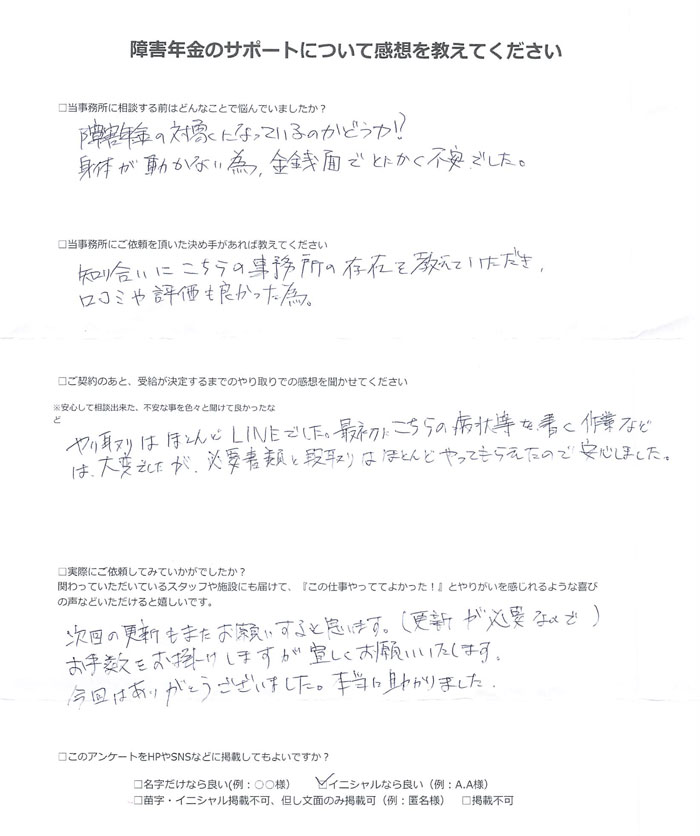 障害年金のサポートについて感想を教えてください
□当事務所に相談する前はどんなことで悩んでいましたか？
障害年金の対象になっているのかどうか!?
身体が動かない為、金銭面でとにかく不安でした。
□当事務所にご依頼を頂いた決め手があれば教えてください
知り合いにこちらの事務所の存在を教えていただき、
口コミや評価も良かった為。
□ご契約のあと、受給が決定するまでのやり取りでの感想を聞かせてください
※安心して相談出来た、不安な事を色々と聞けて良かったな
ど
やり取りはほとんどLINEでした。最初にこちらの病状等を書く作業など
は、大変でしたが、必要書類と段取りはほとんどやってもらえたので安心しました。
□実際にご依頼してみていかがでしたか？
関わっていただいているスタッフや施設にも届けて、『この仕事やっててよかった！』とやりがいを感じれるような喜び
の声などいただけると嬉しいです。
次回の更新もまたお願いすると思います。(更新が必要なので)
お手数をお掛けしますが宜しくお願いいたします。
今回はありがとうございました。本当に助かりました。
□このアンケートをHPやSNSなどに掲載してもよいですか？
□名字だけなら良い(例：○○様)　☑イニシャルなら良い（例：A.A様）
□苗字・イニシャル掲載不可、但し文面のみ掲載可（例：匿名様）　□掲載不可